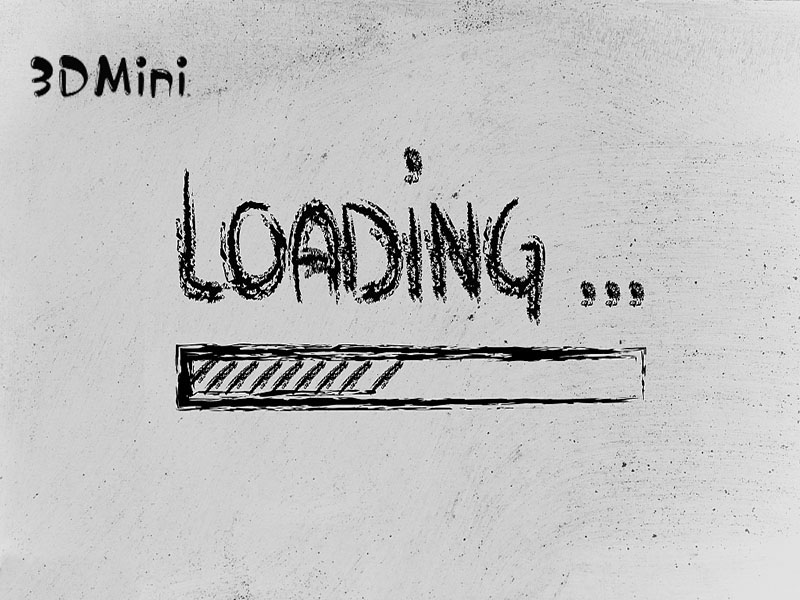 3DMini
LOADiNG ...